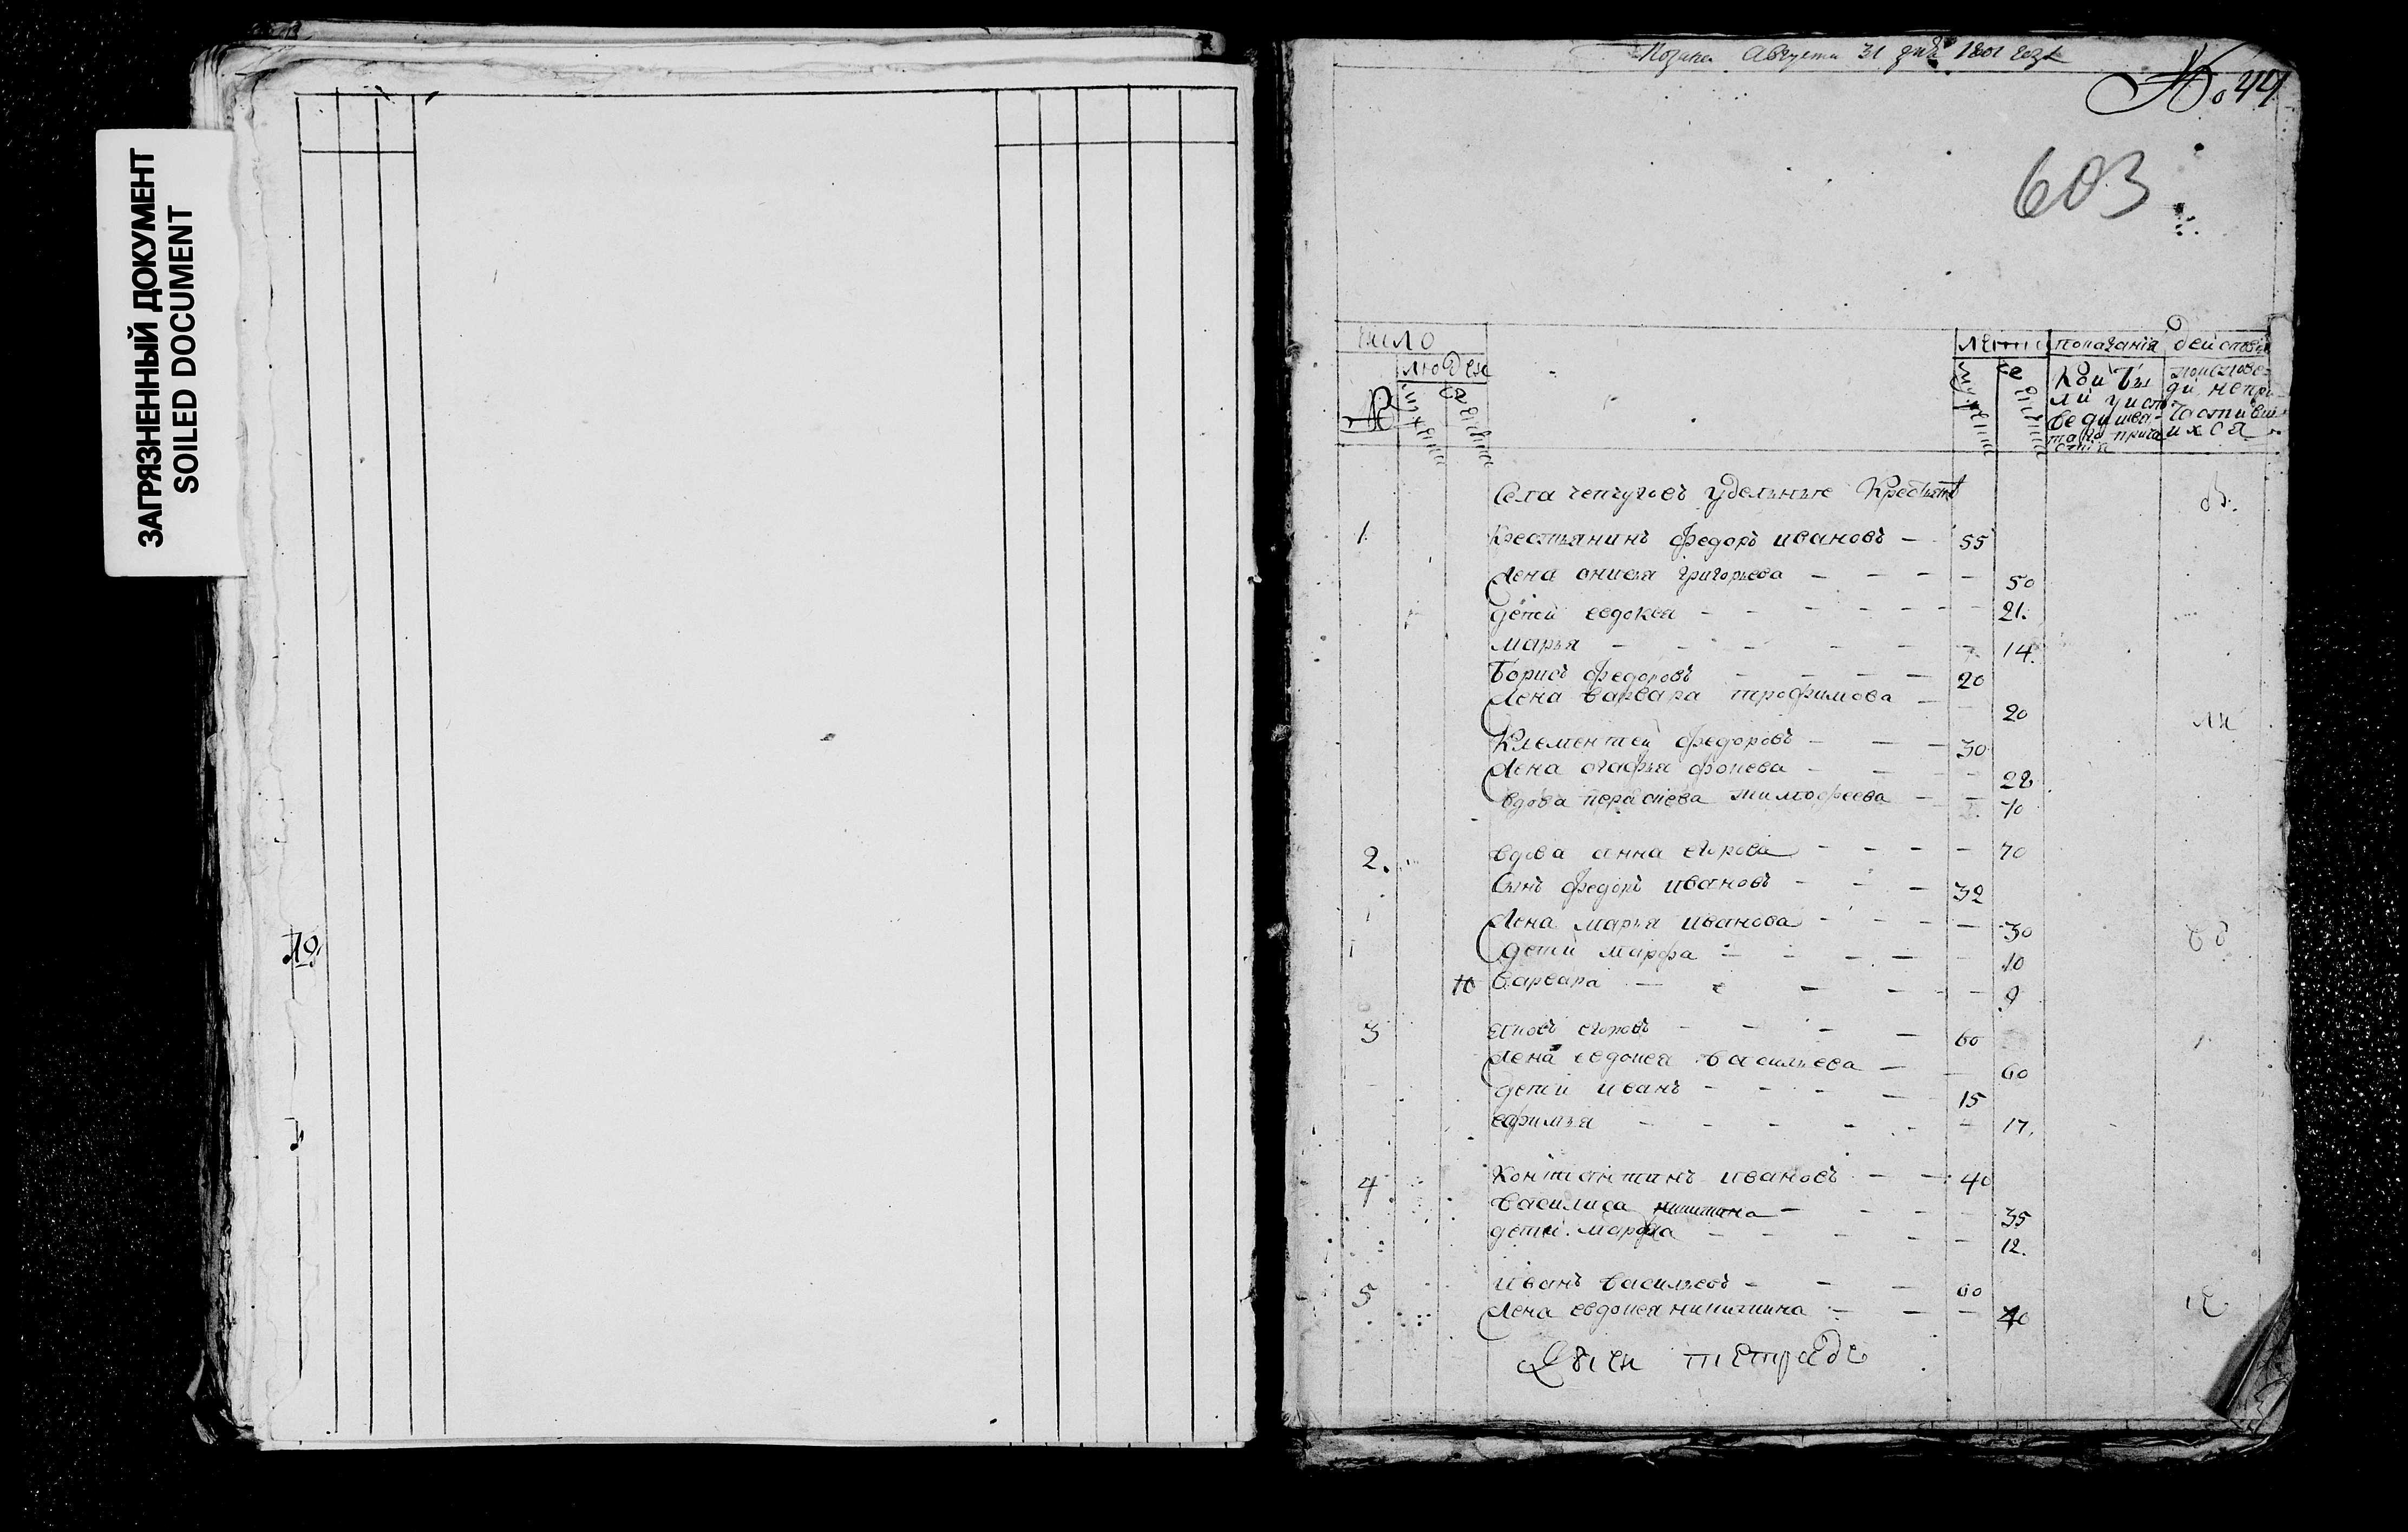 ЗАГРЯЗНЕННЫЙ ДОКУМЕНТ
SOILED DOCUMENT
Августа 31 дня 1801 года
№ 44
603
число
людеи
№
лета
показания
действи
Кои бы
ли у испо
веди и свя
таго прича
стия
по испове-
ди не при
частивш
ихся
Села чепчугов удельные Крестьяне
1. Крестьянинъ федоръ ивановъ — 55
Жена онисья григорьева — 50
детей евдокея — 21.
марья — 14.
Борисъ федоровъ — 20
Жена варвара трофимова — 20
Клементей федоровъ — 30
Жена огафья фокева — 28
вдова тимофеева — 70
2. вдова анна егорова — 70
Сынъ федоръ ивановъ — 32
Жена марья иванова — 30
детей марфа — 10
10 варвара — 9
3 егоровъ — 60
Жена евдокея васильева — 60
детей иванъ — 15
ефимья — 17.
4 Константинъ ивановъ — 40
василиса никитина — 35
детей марфа — 12.
5 иванъ васильевъ — 60
Жена евдокея никитина — 40
тетраде